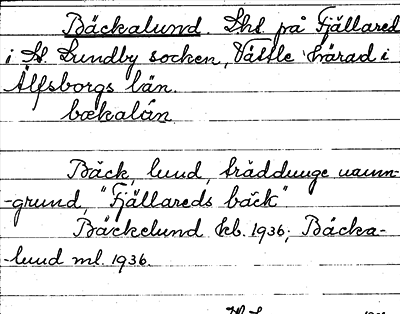 Bäckalund. Lhs. på Fjällared
i St. Lundby socken, Vättle härad i
Älfsborgs län.
bækalún
Bäck, lund, träddunge namn-
-grund, "Fjällareds bäck"
Bäckelund kb. 1936; Bäcka-
-lund ml. 1936.